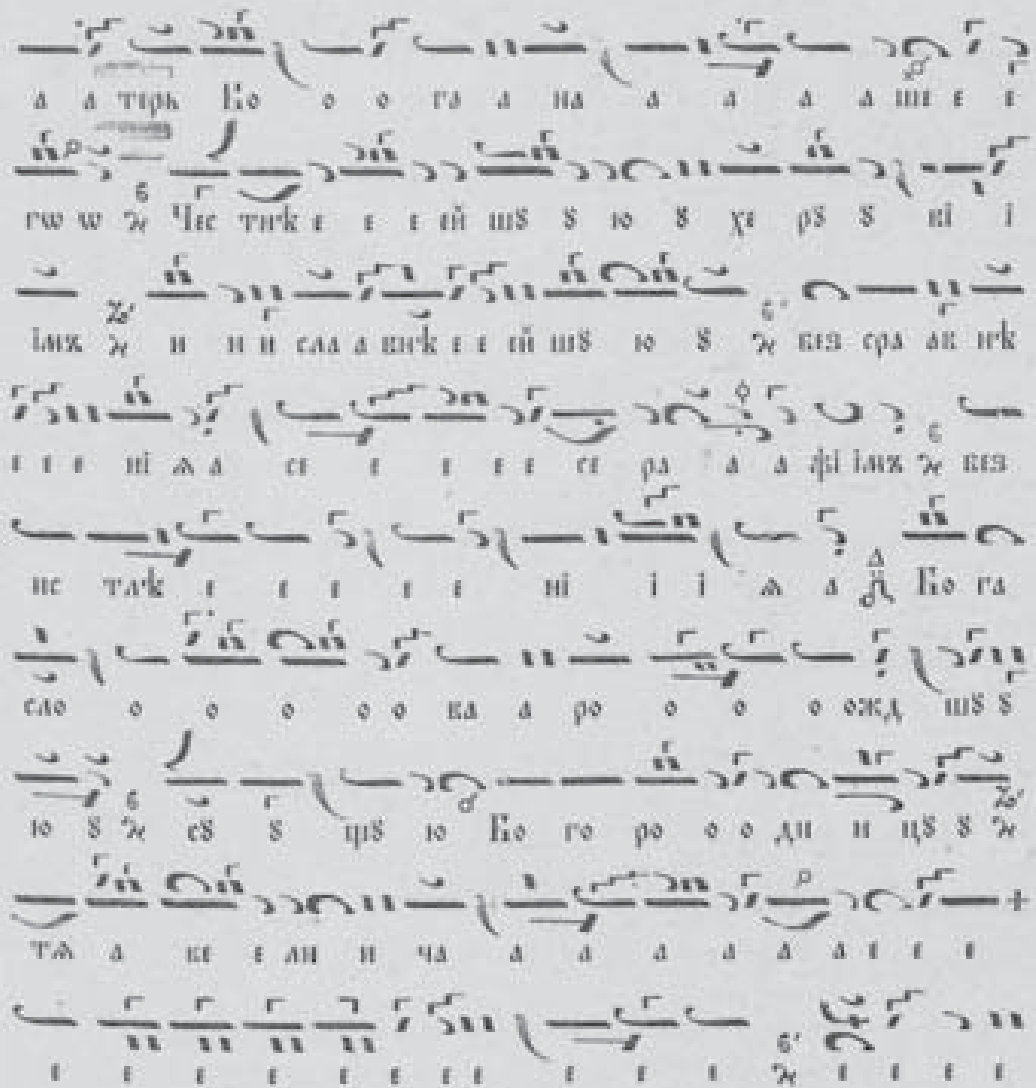 а а терь Бо о о га а на а а а а ше е е
гѡ ѡ Чес тнѣ е е е ей шꙋ ꙋ ю ꙋ хе рꙋ ꙋ ві і
імъ и и и сла а внѣ е е ей шꙋ ю ꙋ без сра ав нѣ
е е е ні ѧ а се е е е е се ра а а фі імъ без
ис тлѣ е е е е е ні і і ѧ а Бо га
сло о о о о о ва а ро о о о ожд шꙋ ꙋ
ю ꙋ сꙋ ꙋ щꙋ ю Бо го ро о о ди и цꙋ ꙋ
тѧ а ве е ли и ча а а а а а е е е
е е е е е е е е е е е е е е